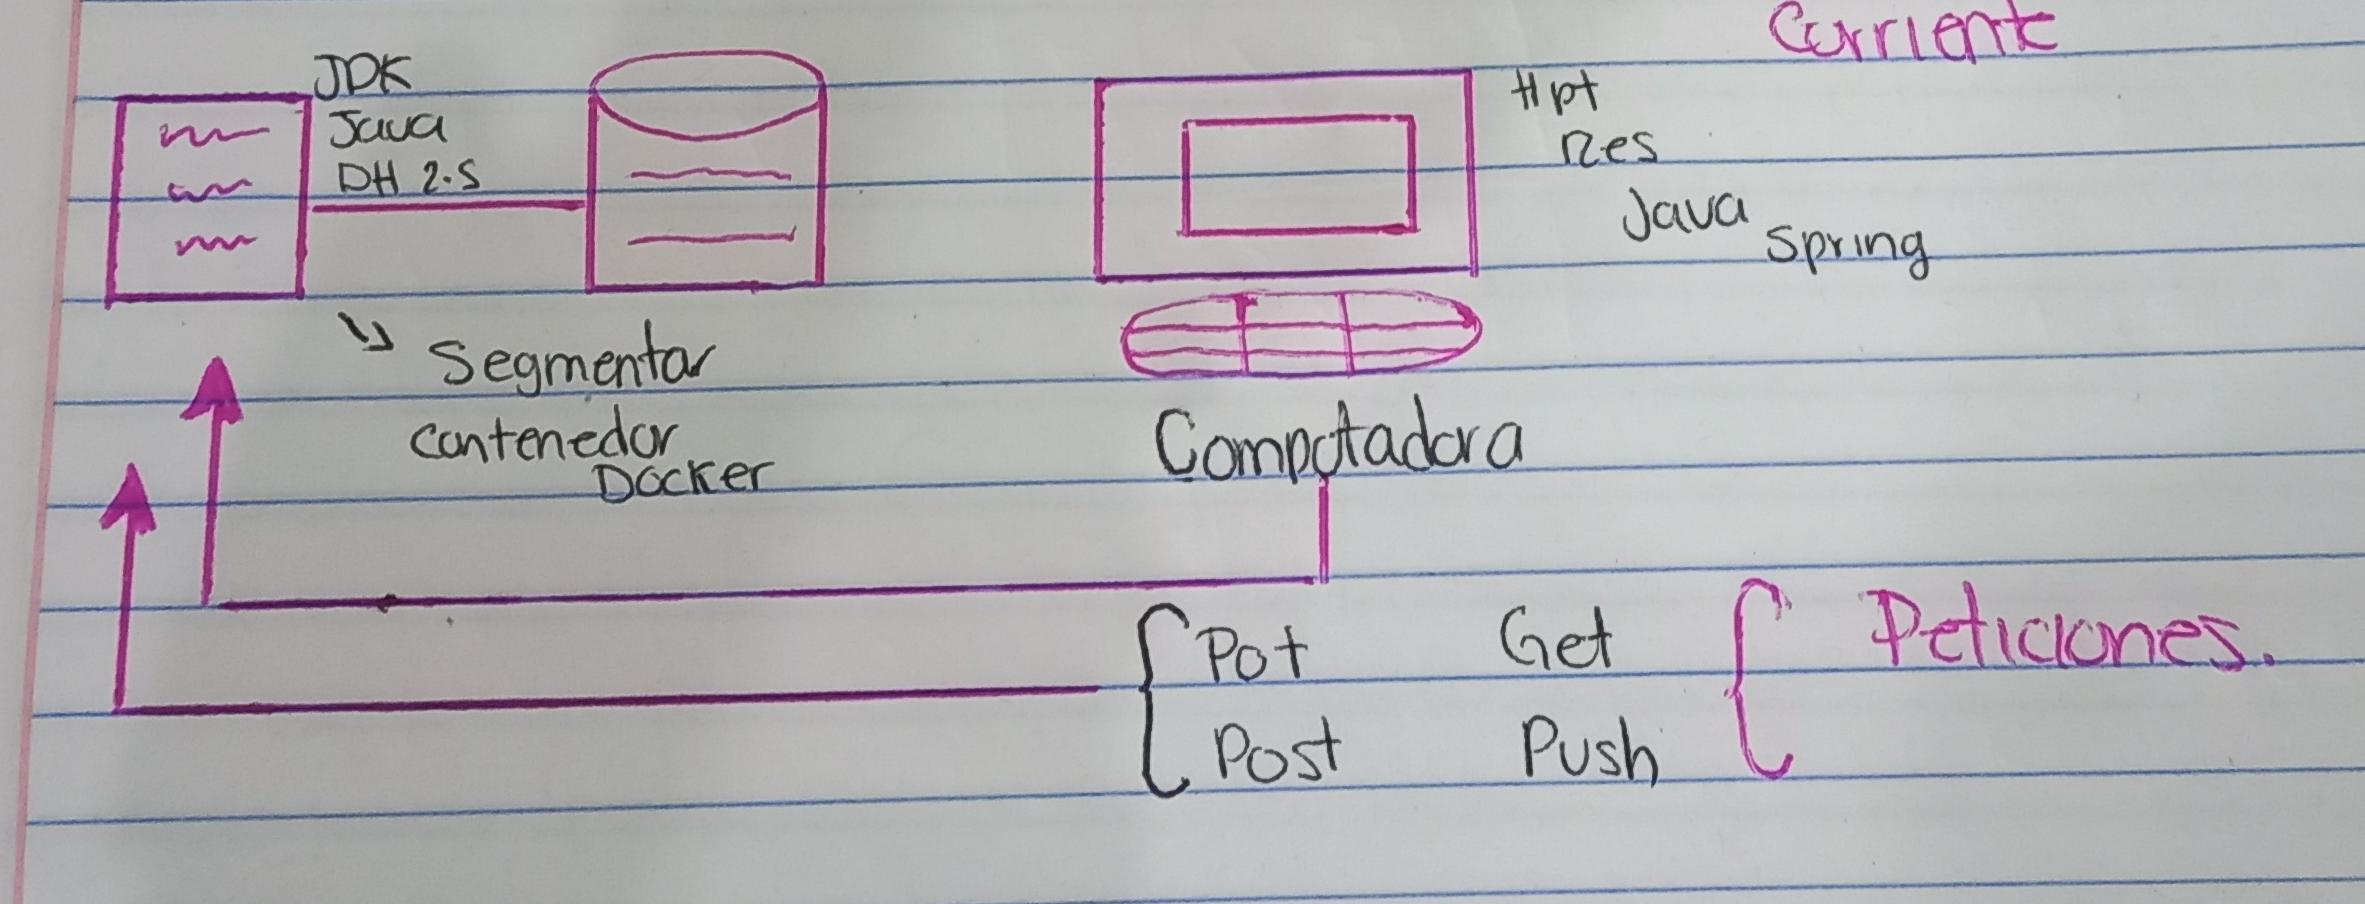 Corriente
JDK
Java
DH 2.5
Hpt
Res
Java
Spring
Segmentar
contenedor
Docker
Computadora
Pot Get
Post Push
Peticiones.